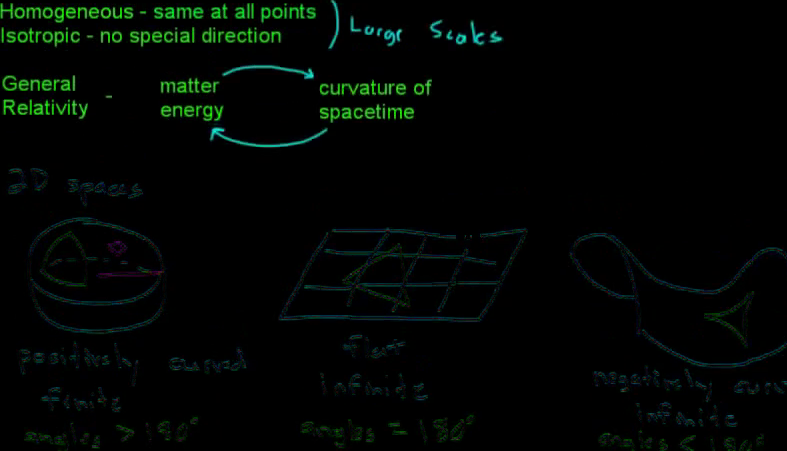 Homogeneous - same at all points
Isotropic - no special direction
Large Scales
General Relativity - matter energy
curvature of spacetime
2D spaces
positively curved
finite
angles > 180°
flat
infinite
angles = 180°
negatively curv
infinite
angles < 180°